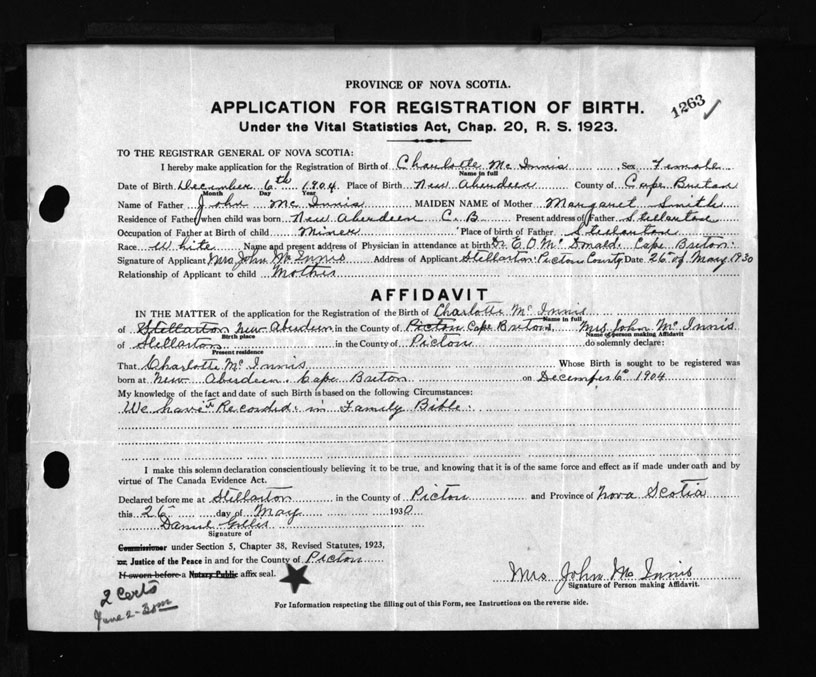 PROVINCE OF NOVA SCOTIA.
1263 ✓
APPLICATION FOR REGISTRATION OF BIRTH.
Under the Vital Statistics Act, Chap. 20, R. S. 1923.
TO THE REGISTRAR GENERAL OF NOVA SCOTIA:
I hereby make application for the Registration of Birth of Charlotte Mc Innis Sex Female
Name in full
Date of Birth December 6th 1904 Place of Birth New Aberdeen County of Cape Breton
Month Day Year
Name of Father John Mc Innis MAIDEN NAME of Mother Margaret Smith
Residence of Father when child was born New Aberdeen C.B Present address of Father Stellarton
Occupation of Father at Birth of child Miner Place of birth of Father Stellarton
Race White Name and present address of Physician in attendance at birth Dr E.O. Mc Donald. Cape Breton.
Signature of Applicant Mrs John Mc Innis Address of Applicant Stellarton Pictou County Date 26 of May 1930
Relationship of Applicant to child Mother
AFFIDAVIT
IN THE MATTER of the application for the Registration of the Birth of Charlotte Mc Innis
Name in full
of Stellarton New Aberdeen in the County of Pictou Cape Breton, Mrs John Mc Innis
Birth place Name of person making Affidavit
of Stellarton in the County of Pictou do solemnly declare:
Present residence
That Charlotte Mc Innis Whose Birth is sought to be registered was
born at New Aberdeen. Cape Breton on December 6th 1904
My knowledge of the fact and date of such Birth is based on the following Circumstances:
We have it Recorded in Family Bible.
I make this solemn declaration conscientiously believing it to be true, and knowing that it is of the same force and effect as if made under oath and by
virtue of The Canada Evidence Act.
Declared before me at Stellarton in the County of Pictou and Province of Nova Scotia
this 26 day of May 1930
Daniel Gillis
Signature of
Commissioner under Section 5, Chapter 38, Revised Statutes, 1923,
or Justice of the Peace in and for the County of Pictou
If sworn before a Notary Public affix seal.
Mrs John Mc Innis
Signature of Person making Affidavit.
2 Certs
June 2-30
For Information respecting the filling out of this Form, see Instructions on the reverse side.